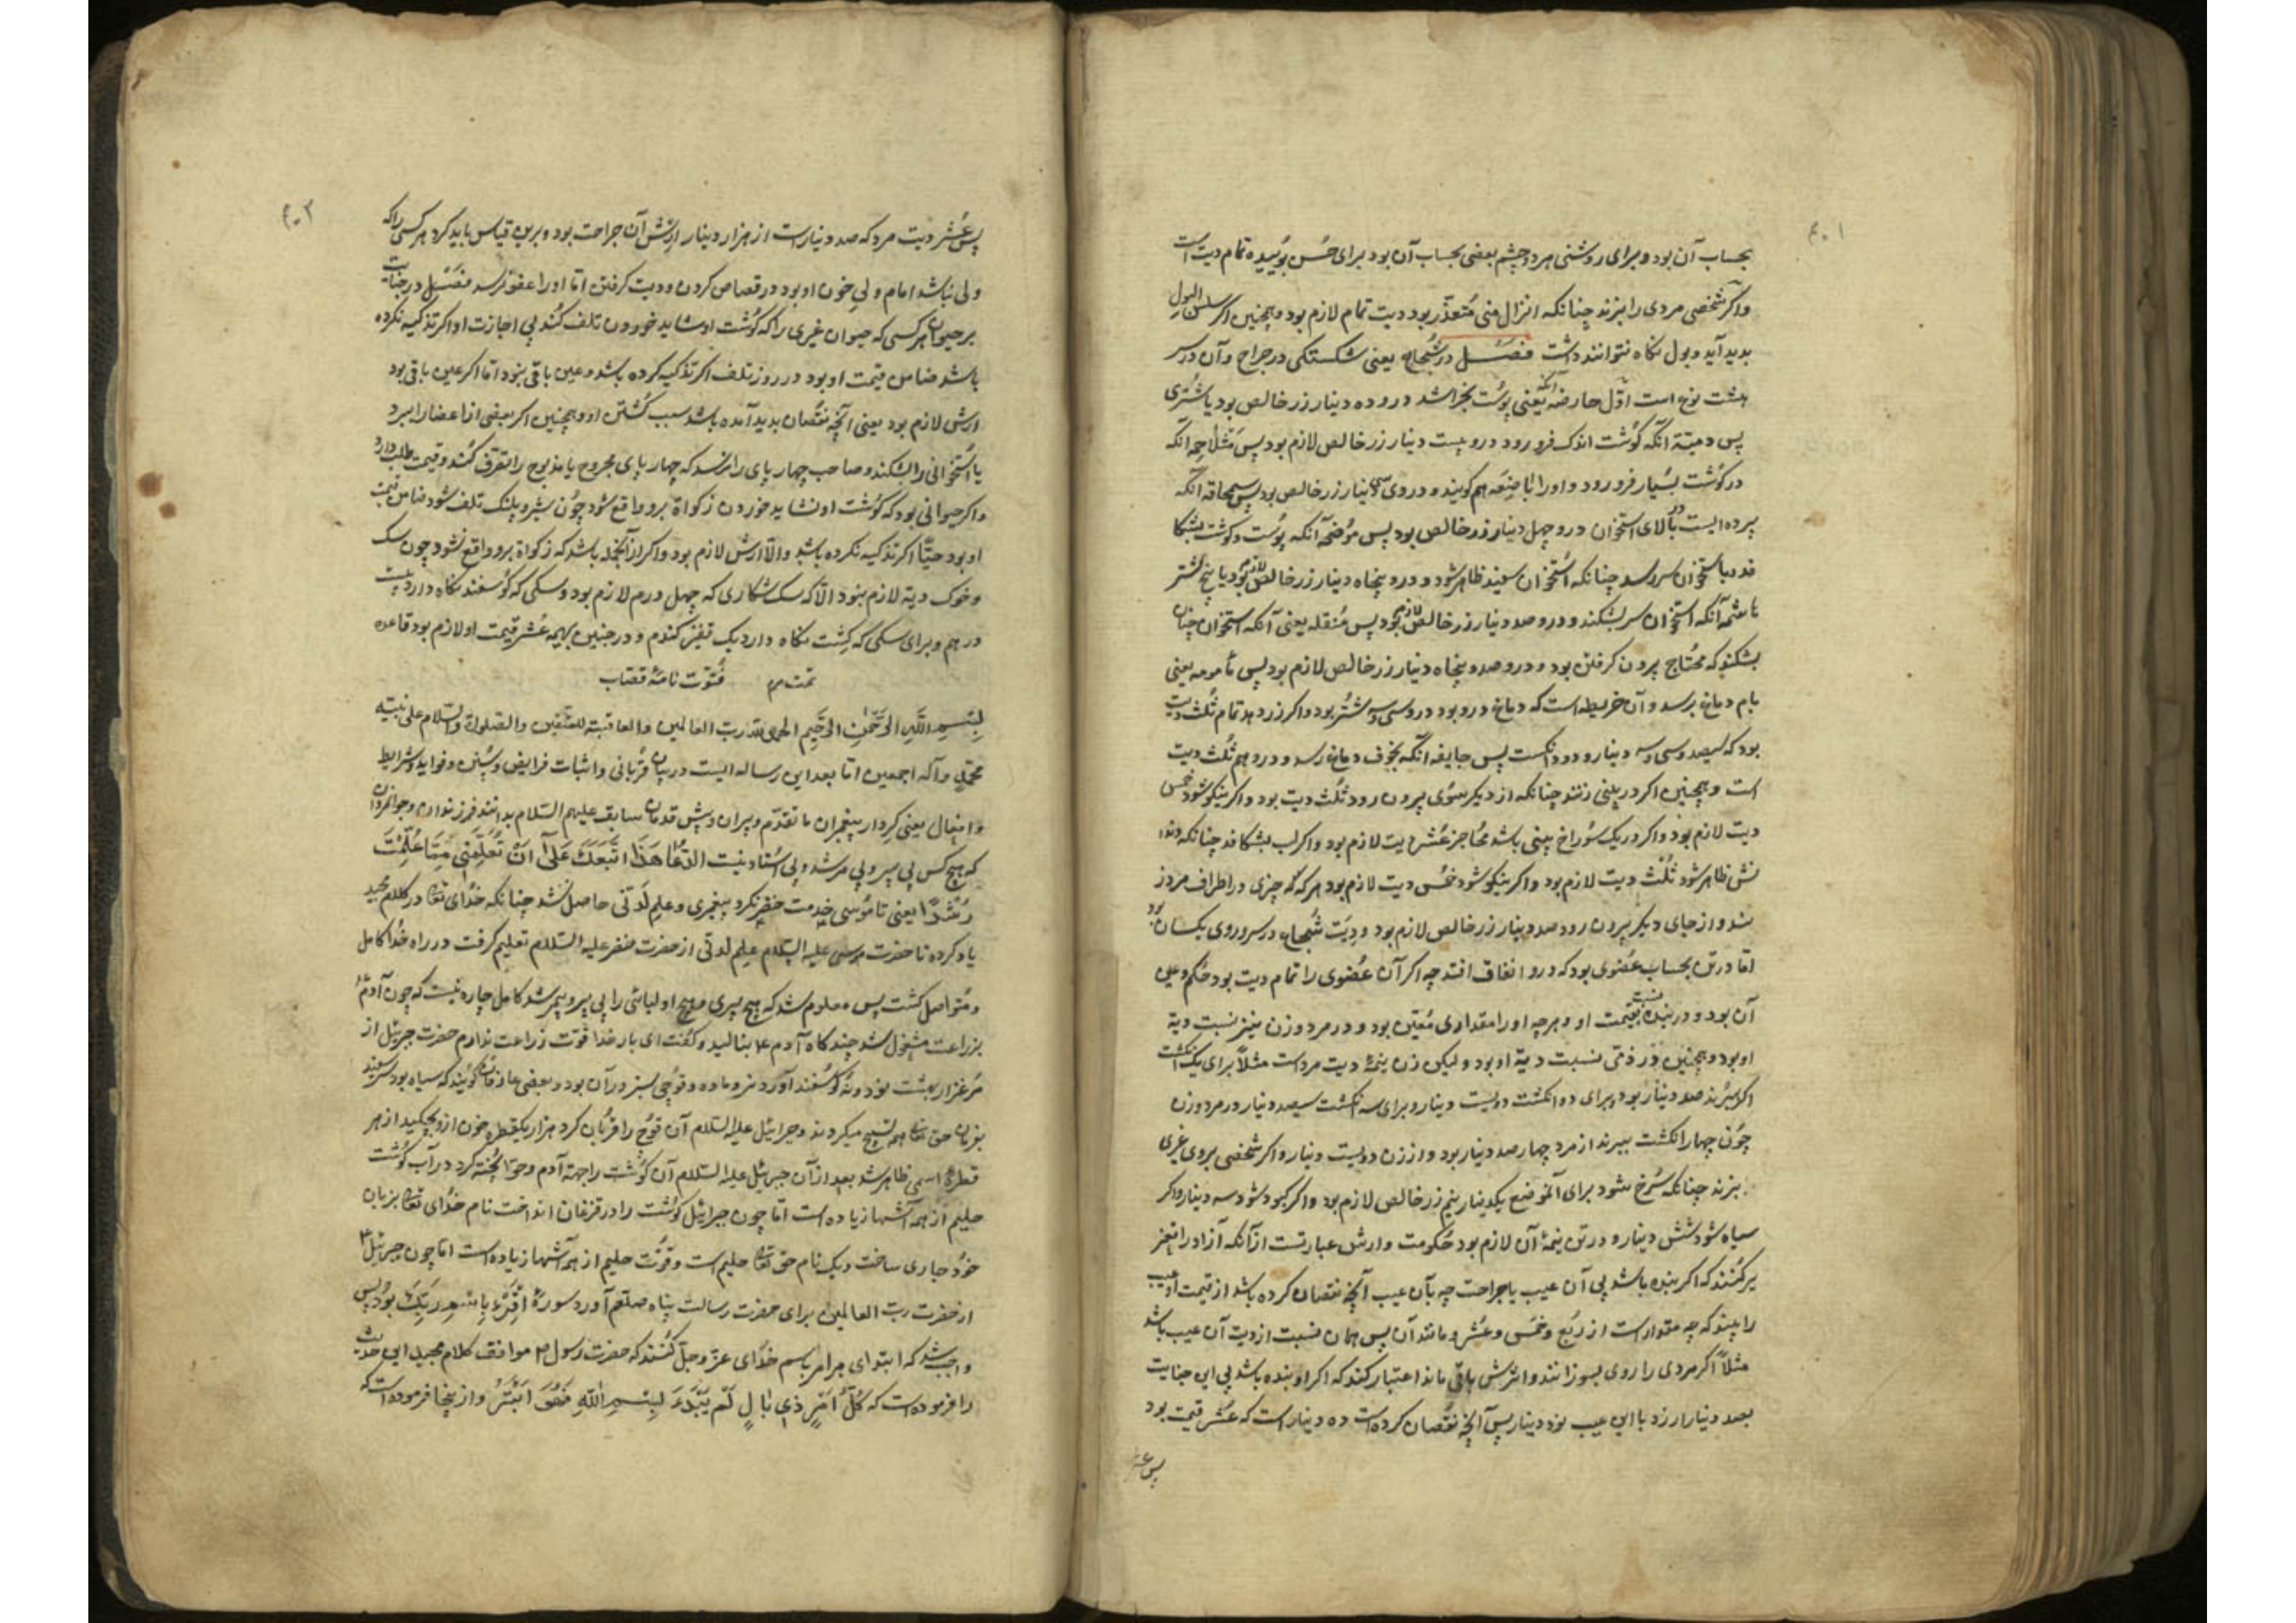 ۴۰۱
بحساب آن بود و برای روشنی هر دو چشم بعضی بحساب آن بود برای حُسن بوُییده تمام دیت است
واکر شخصی مردی را بزند چنانکه انزال منی مُتعذّر بود دیت تمام لازم بود وهمچنین اکر سلس البول
بدید آید و بول نکاه نتواند داشت فصَل در شُجاج یعنی شکستکی در جراح و آن در سر
هشت نوع است اوّل حارضه آنکه یعنی پوُست بخراشد درو ده دینار زر خالص بود یا شتری
پس دمیّة آنکه کوُشت اندک فرو رود درو بیست دینار زر خالص لازم بود پس مَثلاجمه آنکه
در کوُشت بسُیار فرو رود و اورا باضِعَه هم کویند و دروی سی دینار زر خالص بود پس سمحاقه آنکه
پرده ایست بر بالای استخوان درو چهل دینار زر خالص بود پس موُضحه آنکه پوُست و کوشت بشکا
فد وباستخوان سر رسد چنانکه اُستخوان سفید ظاهر شود و درو پنجاه دینار زر خالص لازم بود یا پنج شتر
هاشمه آنکه استخوان سر بشکند و درو صد دینار زر خالص لازم بود پس مُنقله یعنی آنکه استخوان چنان
بشکند که محُتاج بیرون کرفتن بود و درو صد و پنجاه دینار زر خالص لازم بود پس مأمومه یعنی
بام دماغ برسد و آن خریطه است که دماغ درو بود درو سی و سه شتُر بود واکر زر دهد تمام ثلُث دیت
بود که سیصد و سی و سه دینار و دو دانکست پس جایفه آنکه بجوف دماغ رسد و درو هم ثُلث دیت
است و همچنین اکر در بینی زنند چنانکه از دیکر سوُی بیرون رود ثُلث دیت بود واکر نیکو شود خمس
دیت لازم بود واکر در یک سوُراخ بینی باشد عُشر دیت لازم بود واکر لب بشکافد چنانکه دندا
نش ظاهر شود ثُلْث دیت لازم بود واکر نیکو شود خمُس دیت لازم بود هر که که چیزی در اطراف مرد ز
نند و از جای دیکر بیرون رود صد دینار زر خالص لازم بود و دِیَت شُجاج در سر و روی یکسان بود
امّا در تن بحساب عُضوی بود که درو اتفاق افتد چه اکر آن عُضوی را تمام دیت بود حُکم وی
آن بود و در بنده نسبت بقیمت او و هرچه اورا مقداری مُعیّن بود و در مرد و زن نیز نسبت دیة
او بود و همچنین در ذمّی نسبت دیة او بود و لیکن زن نیمهٔ دیت مرد است مثلاً برای یک انکشت
اکر ببُرند صد دینار بود و برای دو انکشت دویست دینار و برای سه انکشت سیصد دینار در مرد وزن
چوُن چهار انکشت ببرند از مرد چهار صد دینار بود و از زن دویست دینار واکر شخصی بروی غیری
بزند چنانکه سُرخ شود برای آنموضع یکدینار نیم زر خالص لازم بود واکر کبود شود سه دینار واکر
سیاه شود شش دینار و در تن نیمهٔ آن لازم بود حُکومت وارش عبارتست از آنکه آزاد را تقد
یر کنند که اکر بنده باشد بی آن عیب یا جراحت چه بآن عیب آنچه نقصان کرده باشد از قیمت او عیب
را ببیند که چه مقدار است از ربُع و خمُس و عُشر و مانند آن پس همان نسبت از دیت آن عیب باشد
مثلاً اکر مردی را روی بسوزانند و اثرش باقی ماند اعتبار کنند که اکر او بنده باشد بی این جنایت
بصد دینار ارزد با این عیب نود دینار پس آنچه نقصان کرده است ده دینار است که عُشر قیمت بود
پس عشر
۴۰۲
پس عُشر دیت مرد که صد دینار است از هزار دینار ارش آن جراحت بود و برین قیاس باید کرد هر کسی را که
ولی نباشد امام ولیِ خون او بود در قصاص کردن و دیت کرفتن امّا اورا عفو نرسد فصَل در جنایت
بر حیوان هر کسی که حیوان غیری را که کوُشت او شاید خوردن تلف کنُد بی اجازت او اکر تذکیه نکرده
باشد ضامن قیمت او بود در روز تلف اکر تذکیه کرده باشد و عین باقی نبود امّا اکر عین باقی بود
ارش لازم بود یعنی آنچه نقُصان بدید آمده باشد سبب کُشتن او و همچنین اکر بعضی از اعضا را ببرد
یا استخوانی را بشکند و صاحب چهار پای را نرسد که چهار پای مجروح یا مذبوح را تصرف کند و قیمت طلب دارد
واکر حیوانی بود که کوُشت او نشاید خوردن زکواة برو واقع شود چوُن شیر و پلنک تلف شود ضامن قیمت
او بود حیّاً اکر تذکیه نکرده باشد والّا ارش لازم بود واکر از آنجمله باشد که زکواة برو واقع نشود چون سک
و خوک دیة لازم نبود الّا که سک شکاری که چهل درم لازم بود و سکی که کوُسفند نکاه دارد بیست
درهم و برای سکی که کِشت نکاه دارد یک قفیز کندم و در جنین بهیمه عُشر قیمت او لازم بود قاعده
تمت م م فُتوّت نامهٔ قصّاب
بِسْمِ اللَّهِ الرَّحْمٰنِ الرَّحِيمِ الحمد للّه ربّ العالمین والعاقبة للمتّقین والصلوة والسّلام علی نبیّه
محمّدٍ وآله اجمعین امّا بعد این رساله ایست در بیان قُربانی و اثبات فرایض و سُنن و فواید و شرایط
و افعال یعنی کِردار پیغمبران ما تقدّم و پیران و پیش قدمان سابق علیهم السّلام بدانند فرزندان و جوانمردان
که هیچ کس بی پیر و بی مرشد و بی اُستاد نیست هَذَا اتَّبَعَكَ عَلَىٰٓ اَنْ تُعَلِّمَنِي مِمَّا عُلِّمْتَ
رُشْدًا یعنی تا موُسی خدمت خضر نکرد پیغمبری و علم لَدنّی حاصل نشد چنانکه خدُای تعالی در کلام مجید
یاد کرده تا حضرت موسی علیه السّلام علم لدنّی از حضرت خضر علیه السّلام تعلیم کرفت در راه خدُا کامل
و مُتواصل کشت پس معلوم شد که هیچ پیری و هیچ اولیائی را بی پیر و بی مرشد کامل چاره نیست که چون آدم
بزراعت مشغول شد چند کاه آدم ع بنالید و کفت ای بار خدا قوّت زراعت ندارم حضرت جبرئیل از
مُرغزار بهشت نود و نُه کوُسفند آورد نر و ماده و قوُچی سبز در آن بود و بعضی عارفان کویند که سیاه بود سر سفید
بفرمان حق تعالی همه تسبیح میکردند و جبرائیل علیه السّلام آن قوُچ را قربُان کرد هزار یکقطره خون از و بچکید از هر
قطرهٔ اسمی ظاهر شد بعد از آن جبرئیل علیه السّلام آن کوُشت را جهة آدم و حوّا پُخته کرد در آب کوُشت
حلیم از همه آشها زیاده است امّا چون جبرائیل کوُشت را در قزغان انداخت نام خدُای تعالی بزبان
خوُد جاری ساخت و یک نام حق تعالی حلیم است و قوّت حلیم از همه آشها زیاده است امّا چون جبرئیل ع
از حضرت ربّ العالمین برای حضرت رسالت پناه صلعم آورد سورهٔ اِقْرَءْ بِاسْمِ رَبِّكَ بود پس
واجب شد که ابتدای هر امر باسم خدُای عزّ وجلّ کنند که حضرت رسول ص موافق کلام مجید این حدیث
را فرموده است که كُلُّ اَمْرٍ ذِي بَالٍ لَمْ يُبْدَءْ بِبِسْمِ اللّٰهِ فَهُوَ اَبْتَرُ و از ینجا فرموده است که